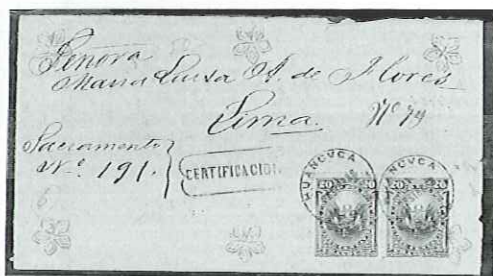 Señora
Maria Luisa A. de Flores
Lima.
Nº 79
Sacramento
Nº 191.
CERTIFICACION
HUANCVCA
ANCVCA
20 20
20 20